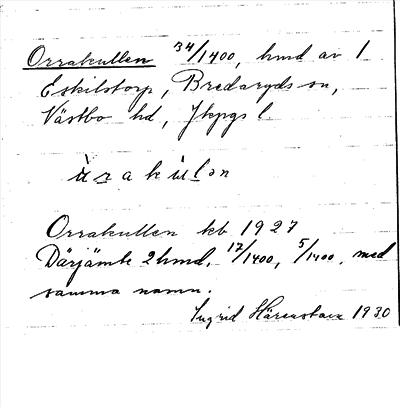 Orrakullen 34/1400, hmd av 1
Eskilstorp, Bredaryds sn,
Västbo hd, Jkpgs l
ùrakùlən
Orrakullen kb 1927
Därjämte 2 hmd, 17/1400, 5/1400, med
samma namn.
Ingrid 1930